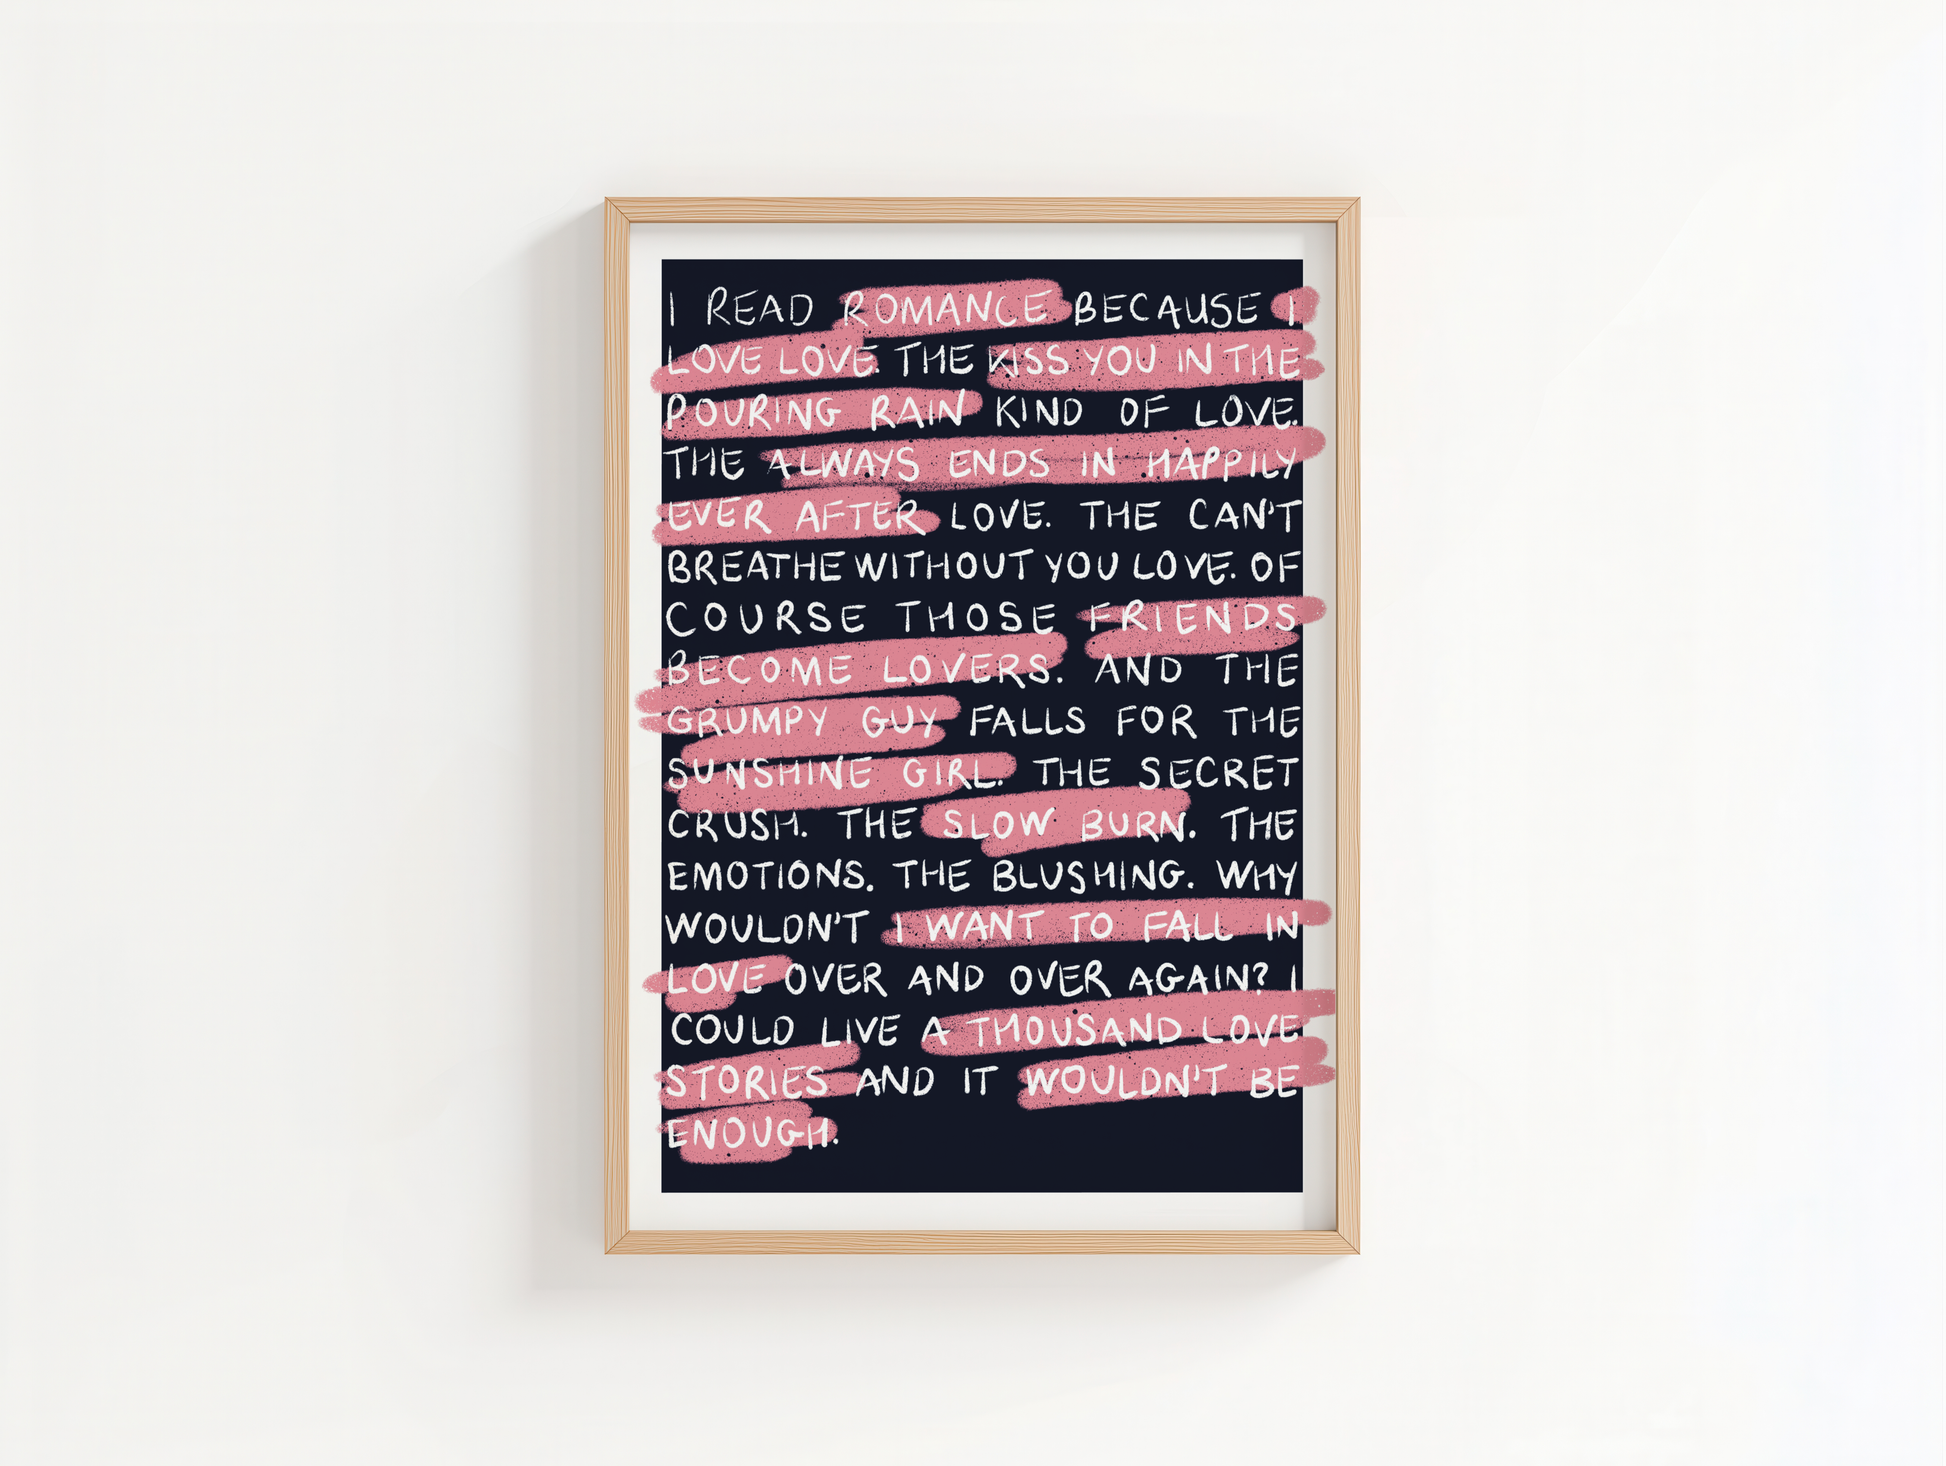 I READ ROMANCE BECAUSE I
LOVE LOVE. THE KISS YOU IN THE
POURING RAIN KIND OF LOVE.
THE ALWAYS ENDS IN HAPPILY
EVER AFTER LOVE. THE CAN'T
BREATHE WITHOUT YOU LOVE. OF
COURSE THOSE FRIENDS
BECOME LOVERS. AND THE
GRUMPY GUY FALLS FOR THE
SUNSHINE GIRL. THE SECRET
CRUSH. THE SLOW BURN. THE
EMOTIONS. THE BLUSHING. WHY
WOULDN'T I WANT TO FALL IN
LOVE OVER AND OVER AGAIN? I
COULD LIVE A THOUSAND LOVE
STORIES AND IT WOULDN'T BE
ENOUGH.